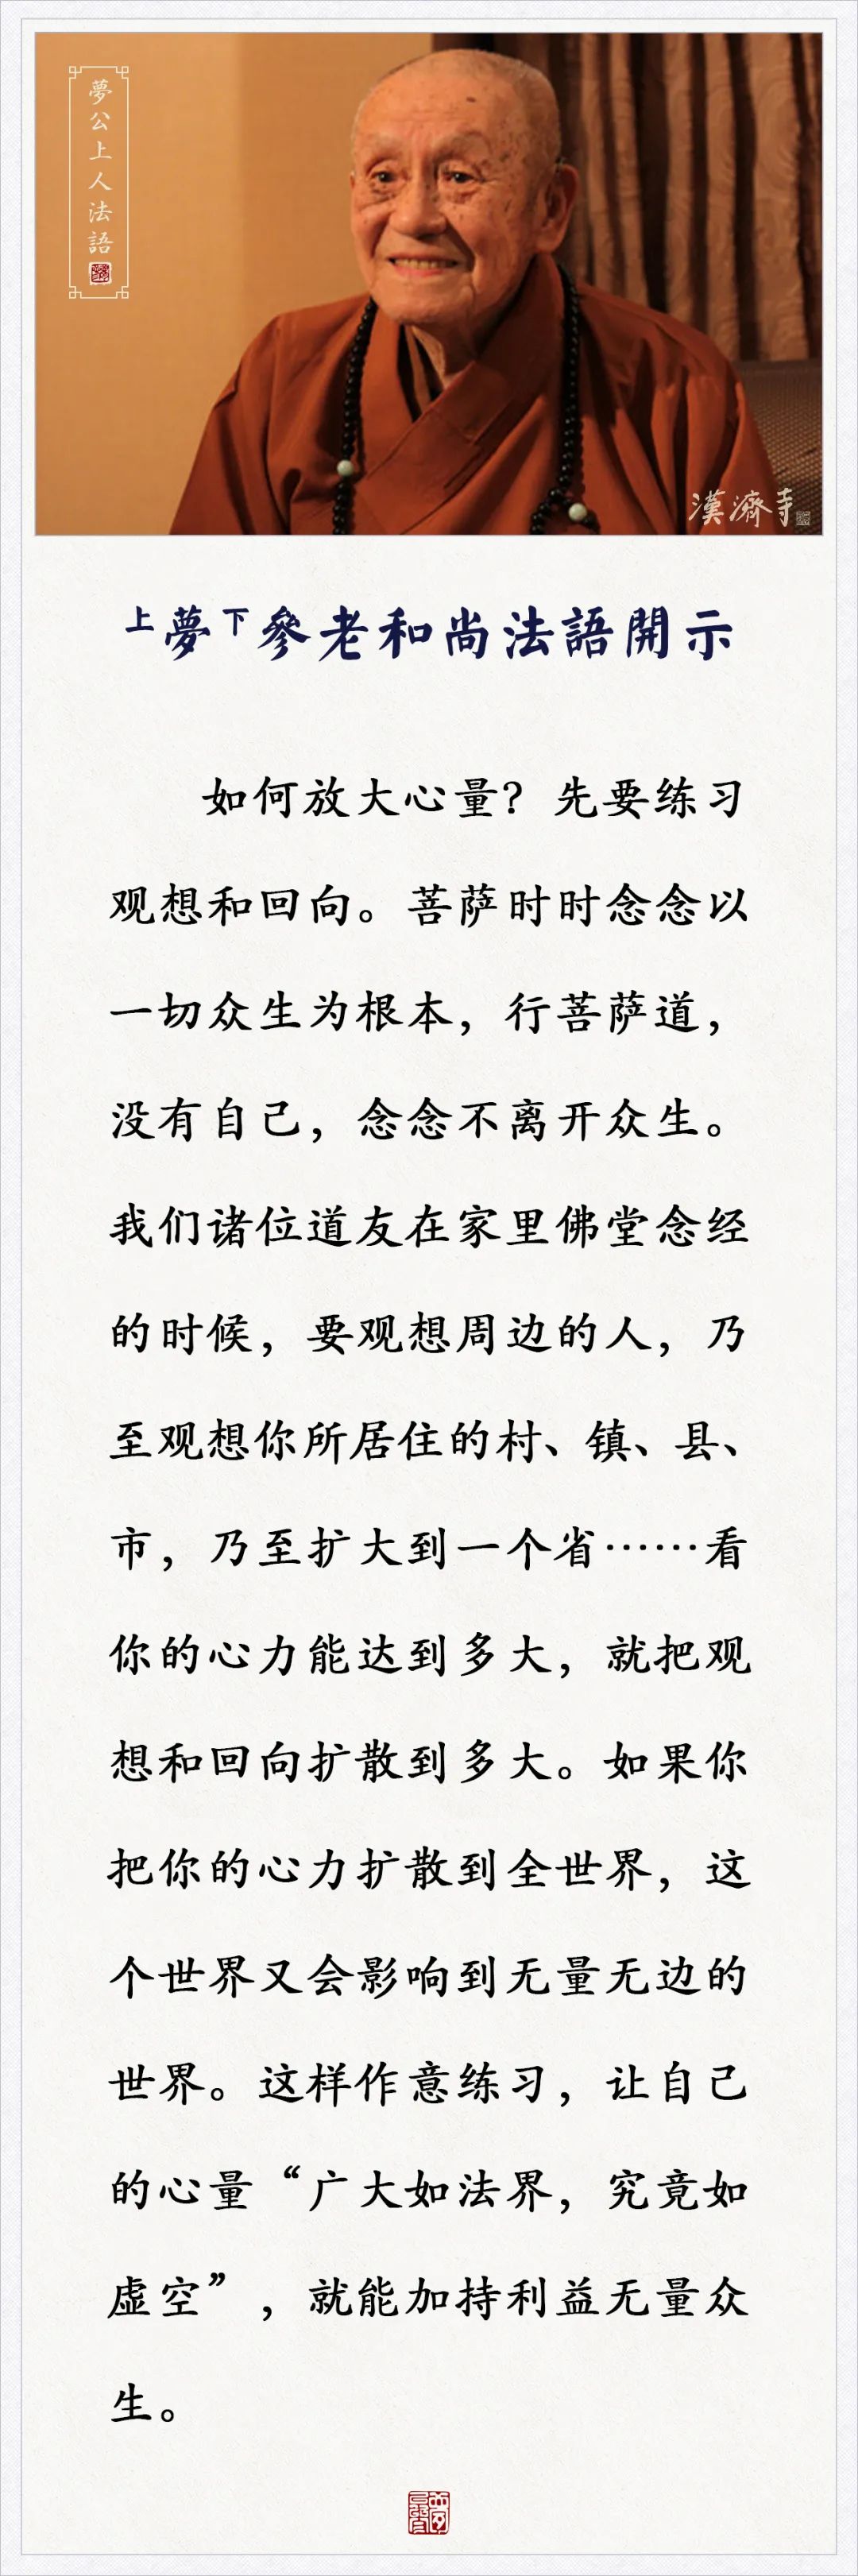 夢公上人法語
漢濟寺
上夢下參老和尚法語開示
如何放大心量？先要练习
观想和回向。菩萨时时念念以
一切众生为根本，行菩萨道，
没有自己，念念不离开众生。
我们诸位道友在家里佛堂念经
的时候，要观想周边的人，乃
至观想你所居住的村、镇、县、
市，乃至扩大到一个省……看
你的心力能达到多大，就把观
想和回向扩散到多大。如果你
把你的心力扩散到全世界，这
个世界又会影响到无量无边的
世界。这样作意练习，让自己
的心量“广大如法界，究竟如
虚空”，就能加持利益无量众
生。